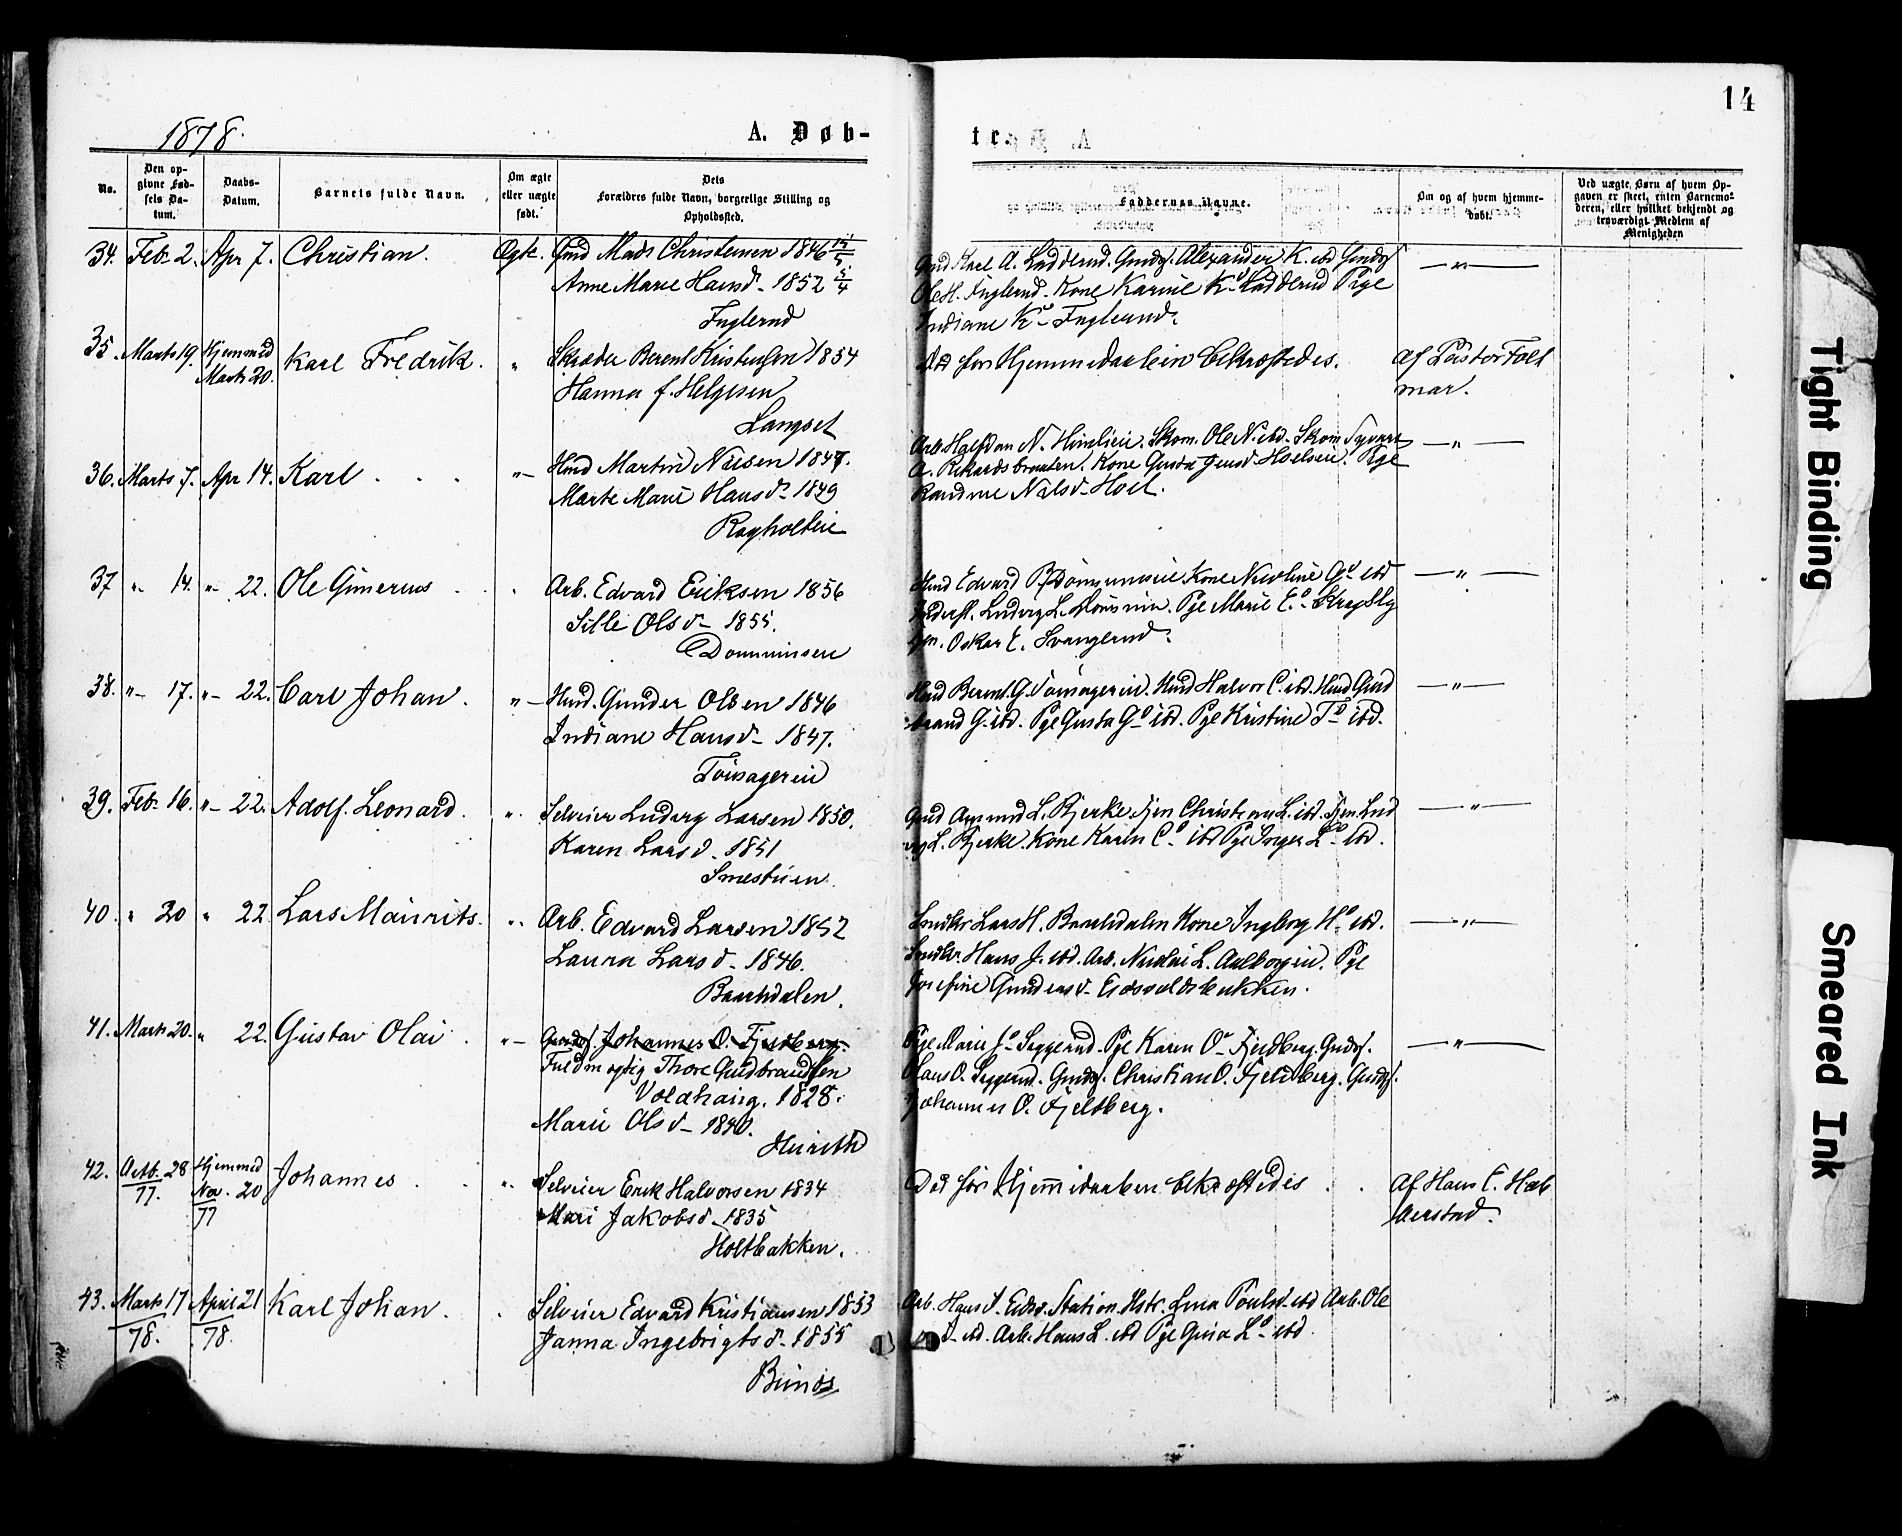 14
1878.
A. Døb-
te.
No.
Den op-
givne Fød-
sels Da-
tum.
Daabs-
Datum.
Barnets fulde Navn.
Om ægte
eller uægte
født.
Dets
Forældres fulde Navn, borgerlige Stilling og
Opholdssted.
Faddernes Navne.
Om og af hvem hjemme-
døbt.
Ved uægte Børn af hvem Op-
gaven er skeet, enten Barnemo-
deren, eller hvilket bekjendt og
troværdigt Medlem af
Menigheden
34. Feb. 2. Apr 7. Christian. Ægte. Mads Christensen 1846 15/5
Anne Marie Hansd. 1852 5/4
Fuglerud
Karl A. Ladderud. Alexander K. ibd
Ole H. Fuglerud. Kone Karine Ladderud Pige
Indiane Fuglerud.
35. Marts 19. Hjemmed Marts 20. Karl Fredrik. „ Skræder Bernt Kristensen 1854
Hanna f. Helgesen
Langset
Død før Hjemmedaaben bekræftedes. Af Pastor Folk
mar.
36. Marts 7. Apr 14. Karl . . . „— Hmd Martin Nilsen 1847.
Marte Marie Hansd. 1849
Ragholteie
Arb. Halfdan N. Skom. Ole N. ibd. Skom.
A. Rikardsbraaten. Kone Pige
Nilsd. Hoel.
37 „ 14. „ 22. Ole Gunerius . . Arb. Edvard Eriksen 1856
Sille Olsd. 1855.
Dommussen
Hmd Edvard Kone ibd
Ludvig L. Pige Marie
Oskar E. Svanglerud.
38. „— 17. „— 22. Carl Johan. „— Hmd. Gunder Olsen 1846
Indiane Hansd. 1847.
Toisagereie
Hmd Bernt G. Toisagereie. Hmd Halvor C. ibd. Hmd Gud
brand G. ibd. Pge Gusta ibd. Pge Kristine ibd.
39. Feb. 16. „— 22. Adolf Leonard. „. Selveier Ludvig Larsen 1850.
Karen Larsd. 1851
Smestuen.
L. Bjerke. L. ibd.
L. Bjerke. Kone Karen ibd Pge Inger ibd.
40. „ 20 „ 22 Lars Mauritz. „. Arb. Edvard Larsen 1852
Laura Larsd. 1846.
Baashdalen.
Lars H. Baashdalen Kone Ingeborg ibd.
Hans J. ibd. Arb. Nicolai L. Pge
Josefine Gundersd. Eidsvoldsbakken.
41. Marts 20. „ 22. Gustav Olai . „— Johannes O. Fjeldberg.
Fuldmægtig Thore Gudbrandsen
Voldhaug. 1828.
Marie Olsd. 1840.
Pge Marie Seggerud. Pge Karen Fjeldberg.
Hans O. Seggerud. Christian O. Fjeldberg.
Johannes O. Fjeldberg.
42. Octb. 28 77. Hjemmed Nov. 20 77 Johannes . . „. Selveier Erik Halvorsen 1834
Mari Jakobsd. 1835
Holtbakken.
Død før Hjemmedaaben bekræftedes . . Af Hans C. Hæb
43. Marts 17 78. April 21 78. Karl Johan . . Selveier Edvard Kristiansen 1853
Janna Ingebrigtsd. 1855
Arb. Hans Eidsv. Station. Lina Poulsd. ibd Arb. Ole
ibd. Arb. Hans L. ibd Pge ibd.
Tight Binding
Smeared Ink